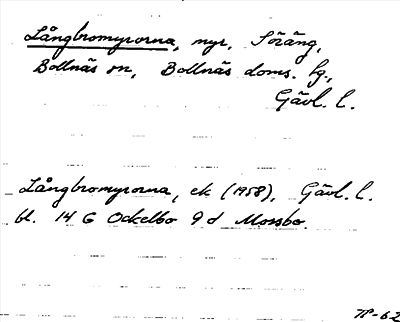 Långbromyrorna, myr, Söräng,
Bollnäs sn, Bollnäs doms. fg.,
Gävl. l.
Långbromyrorna, ek (1958), Gävl. l.
bl. 14 G Ockelbo 9 d Mossbo.
TP-62